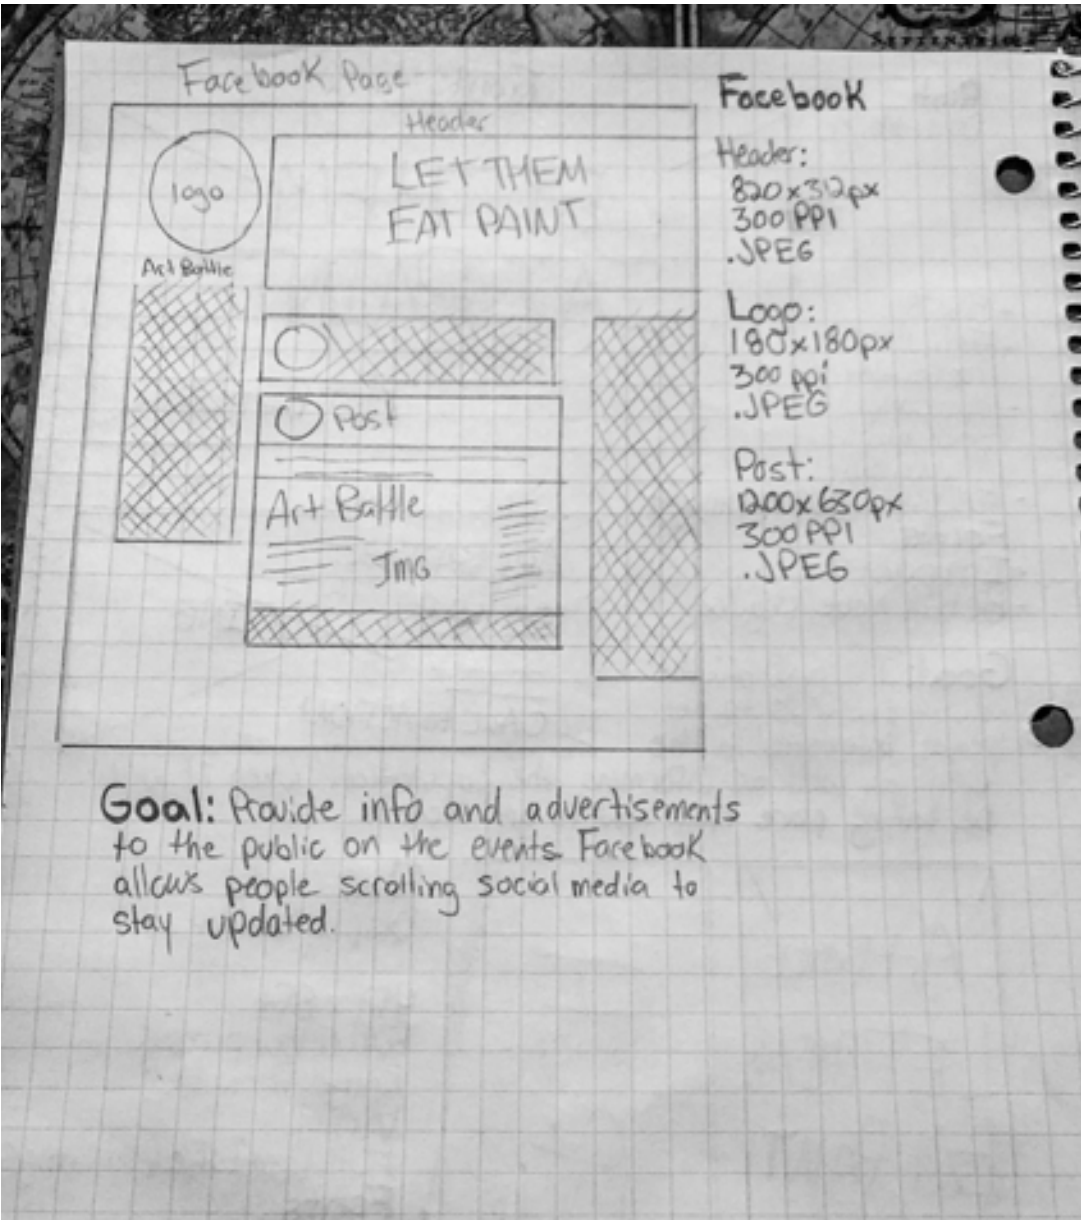 Facebook Page
Header
logo
LET THEM
EAT PAINT
Art Battle
Post
Art Battle
Img
Facebook
Header:
820x312px
300 PPI
.JPEG
Logo:
180x180px
300 ppi
.JPEG
Post:
1200x630px
300 PPI
.JPEG
Goal: Provide info and advertisements
to the public on the events. Facebook
allows people scrolling social media to
stay updated.